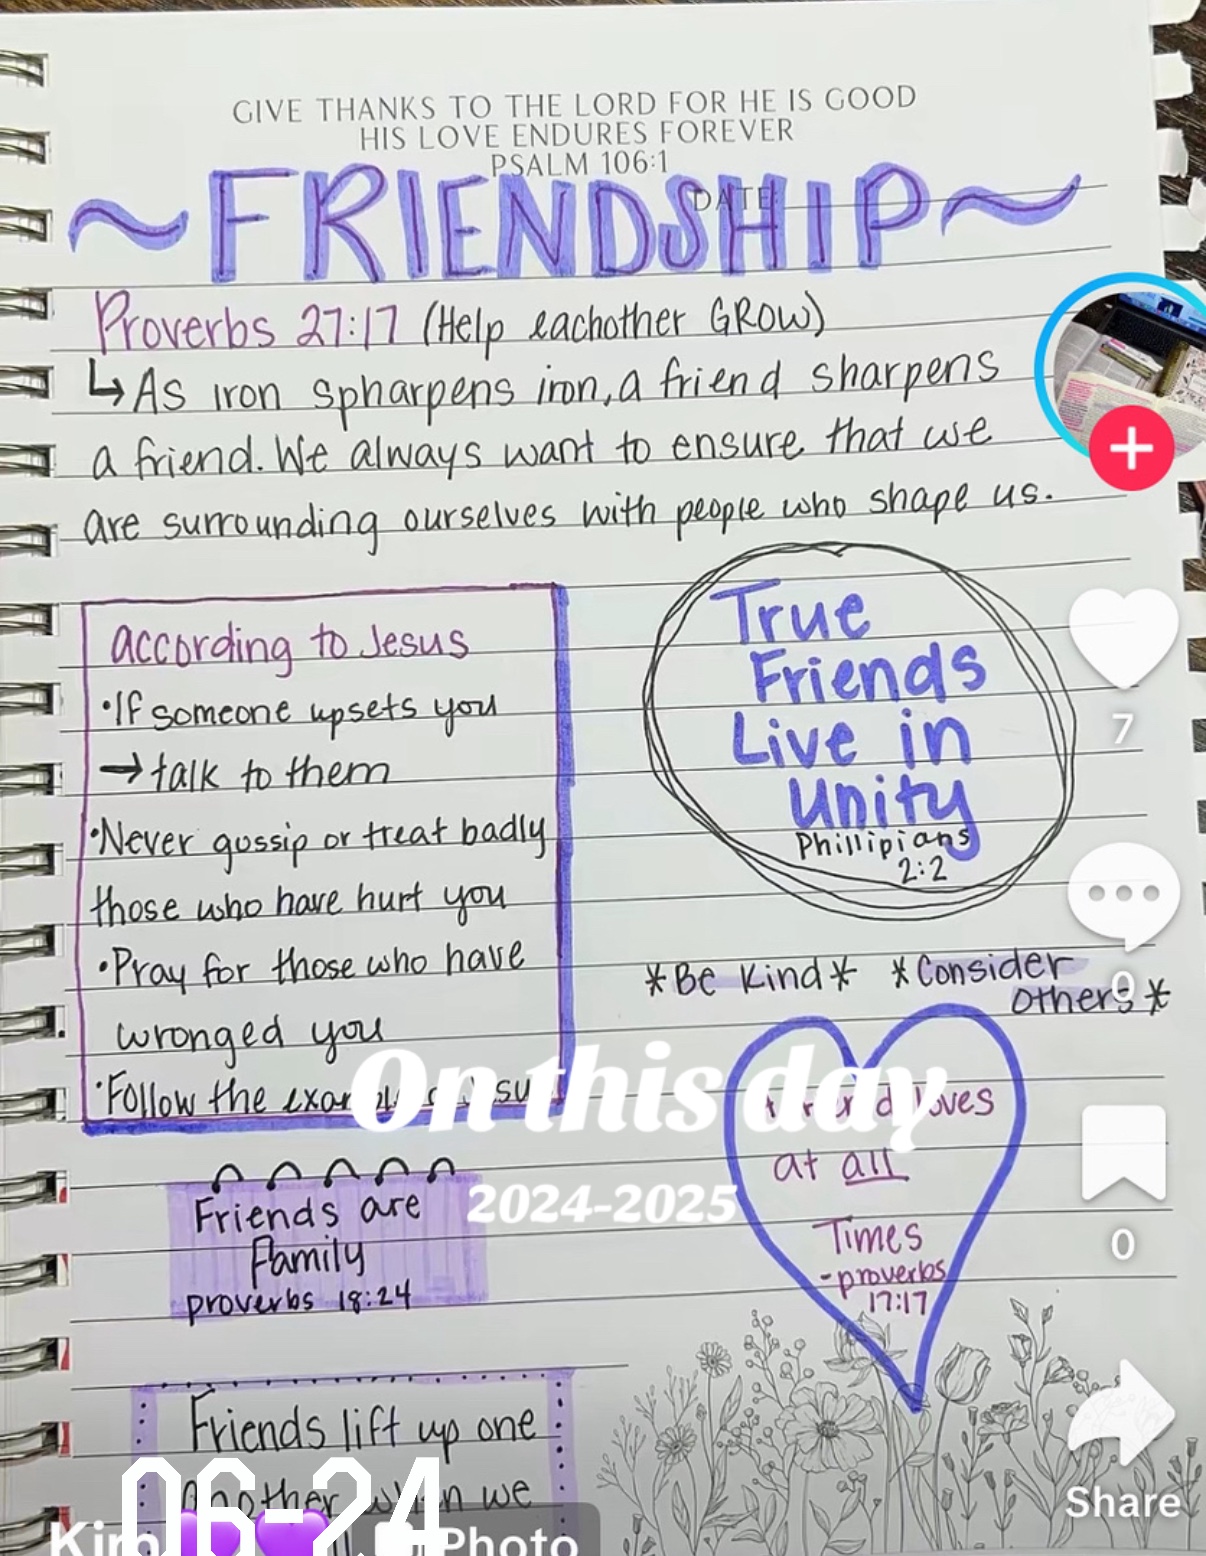 GIVE THANKS TO THE LORD FOR HE IS GOOD
HIS LOVE ENDURES FOREVER
PSALM 106:1
DATE
~FRIENDSHIP~
Proverbs 27:17 (Help eachother GROW)
↳As iron spharpens iron, a friend sharpens
a friend. We always want to ensure that we
are surrounding ourselves with people who shape us.
according to Jesus
•If someone upsets you
→talk to them
•Never gossip or treat badly
those who have hurt you
•Pray for those who have
wronged you
•Follow the
True
Friends
Live in
Unity
Phillipians
2:2
*Be Kind* *Consider
others*
loves
at all
Times
-proverbs
17:17
On this day
2024-2025
Friends are
Family
proverbs 18:24
Friends lift up one
another when we
06-24
Kim
Photo
7
0
0
Share